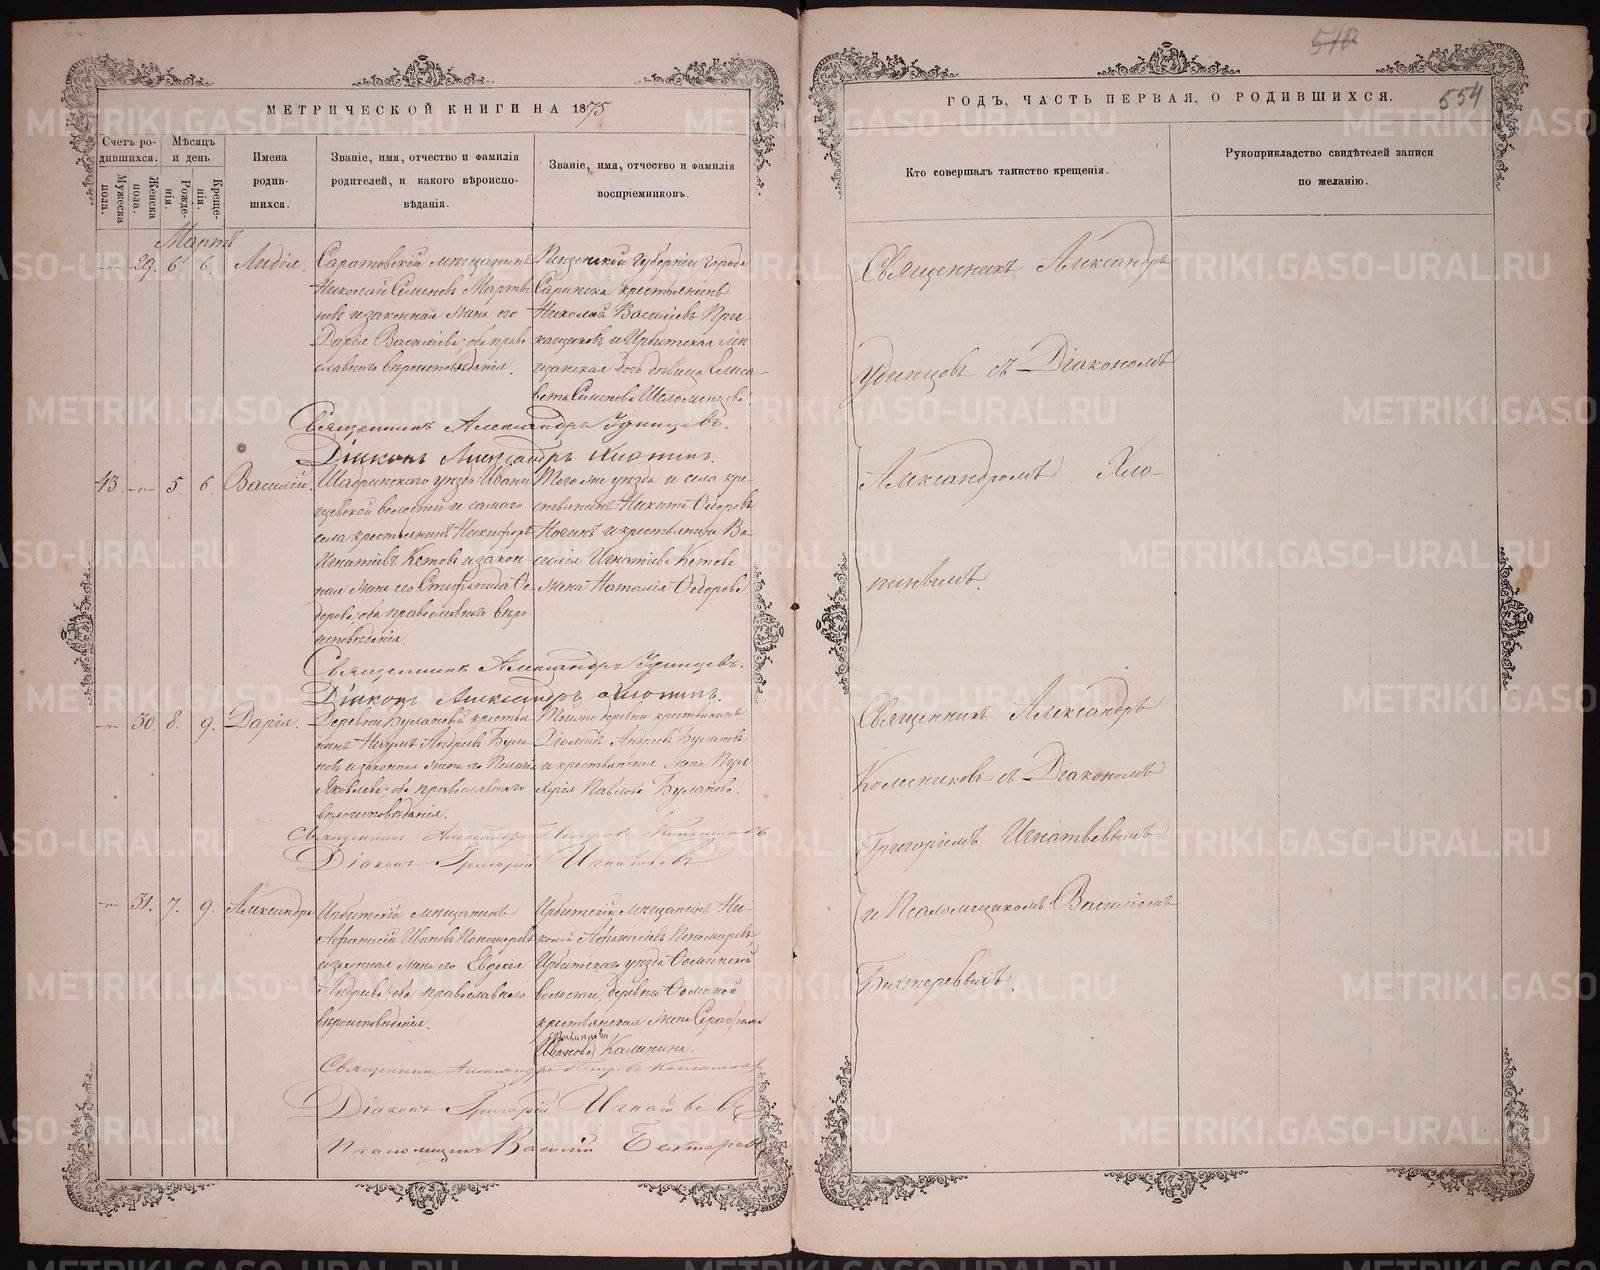 МЕТРИЧЕСКОЙ КНИГИ НА 1875
Счетъ ро-
дившихся.
Мужеска
пола.
Женска
пола.
Мѣсяцъ
и день
Рожде-
нія.
Креще-
нія.
Имена
родив-
шихся.
Званіе, имя, отчество и фамилія
родителей, и какого вѣроиспо-
вѣданія.
Званіе, имя, отчество и фамилія
воспріемниковъ.
Мартъ
29. 6. 6. Лидія.
Саратовскій мѣщанинъ
Николай Семеновъ Марты
новъ и законная жена его
Дарія Васильева, оба право
славнаго вѣроисповѣданія.
Пензенской губерніи города
Саранска крестьянинъ
Николай Василіевъ При-
кащиковъ и Ирбитская мѣ-
щанская дочь дѣвица Елиса-
вета Семенова Шеломенцова.
Священникъ Александръ Удинцовъ.
Діаконъ Александръ Хлопинъ.
43. 5. 6. Василій.
Шадринскаго уѣзда Ивани
щевской волости и самаго
села крестьянинъ Никифоръ
Игнатіевъ Кетовъ и закон-
ная жена его Стефанида Ѳе-
дорова, оба православнаго вѣро
исповѣданія.
Того же уѣзда и села кре-
стьянинъ Никита Ѳедоровъ
и крестьянина Ва-
силія Игнатіева Кетова
жена Наталія Ѳедорова.
Священникъ Александръ Удинцовъ.
Діаконъ Александръ Хлопинъ.
30. 8. 9. Дарія.
Деревни Булановой крестья
нинъ Наумъ Андреевъ Була-
новъ и законная жена его Пелагія
Яковлева, оба православнаго
вѣроисповѣданія.
Тойже деревни крестьянинъ
Андреевъ Булановъ
и крестьянская жена
Павлова Буланова.
Священникъ Александръ Петровъ
Діаконъ Григорій Игнатьевъ
31. 7. 9. Александра
Ирбитскій мѣщанинъ
Афанасій Ивановъ Пономаревъ
и законная жена его Евдокія
Андреева, оба православнаго
вѣроисповѣданія.
Ирбитскій мѣщанинъ Ни-
колай Афанасіевъ Пономаревъ,
Ирбитскаго уѣзда
волости, деревни
крестьянская жена Серафима
Калинина.
Священникъ Александръ Петровъ
Діаконъ Григорій Игнатьевъ
Псаломщикъ Василій
518
ГОДЪ, ЧАСТЬ ПЕРВАЯ, О РОДИВШИХСЯ.
554
Кто совершалъ таинство крещенія.
Рукоприкладство свидѣтелей записи
по желанію.
Священникъ Александръ
Удинцовъ съ Діакономъ
Александромъ Хло-
пинымъ.
Священникъ Александръ
съ Діакономъ
Григоріемъ Игнатьевымъ
и Псаломщикомъ Василіемъ
METRIKI.GASO-URAL.RU